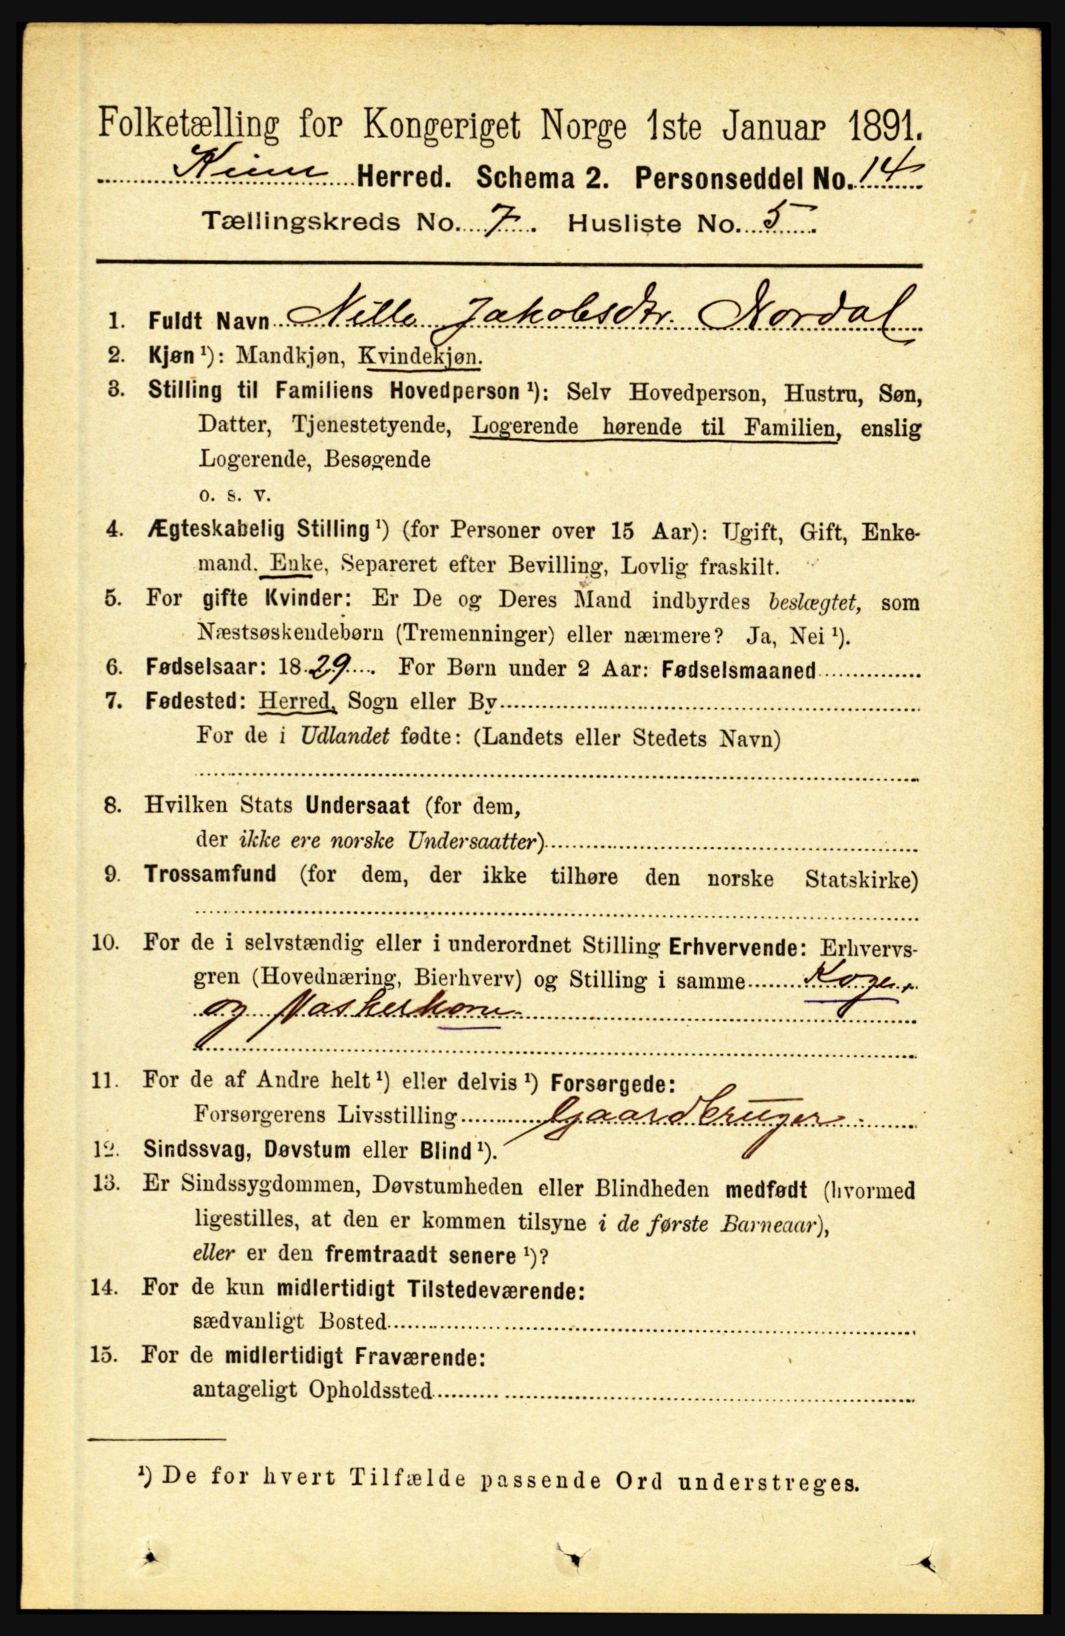 Folketælling for Kongeriget Norge 1ste Januar 1891.
Kinn Herred. Schema 2. Personseddel No. 14
Tællingskreds No. 7. Husliste No. 5.
1. Fuldt Navn Nille Jakobsdtr. Nordal
2. Kjøn ¹): Mandkjøn, Kvindekjøn.
3. Stilling til Familiens Hovedperson ¹): Selv Hovedperson, Hustru, Søn,
Datter, Tjenestetyende, Logerende hørende til Familien, enslig
Logerende, Besøgende
o. s. v.
4. Ægteskabelig Stilling ¹) (for Personer over 15 Aar): Ugift, Gift, Enke-
mand, Enke, Separeret efter Bevilling, Lovlig fraskilt.
5. For gifte Kvinder: Er De og Deres Mand indbyrdes beslægtet, som
Næstsøskendebørn (Tremenninger) eller nærmere? Ja, Nei ¹).
6. Fødselsaar: 1829. For Børn under 2 Aar: Fødselsmaaned
7. Fødested: Herred, Sogn eller By
For de i Udlandet fødte: (Landets eller Stedets Navn)
8. Hvilken Stats Undersaat (for dem,
der ikke ere norske Undersaatter)
9. Trossamfund (for dem, der ikke tilhøre den norske Statskirke)
10. For de i selvstændig eller i underordnet Stilling Erhvervende: Erhvervs-
gren (Hovednæring, Bierhverv) og Stilling i samme Koge-
og Vaskerkone
11. For de af Andre helt ¹) eller delvis ¹) Forsørgede:
Forsørgerens Livsstilling Gaardbruger
12. Sindssvag, Døvstum eller Blind ¹).
13. Er Sindssygdommen, Døvstumheden eller Blindheden medfødt (hvormed
ligestilles, at den er kommen tilsyne i de første Barneaar),
eller er den fremtraadt senere ¹)?
14. For de kun midlertidigt Tilstedeværende:
sædvanligt Bosted
15. For de midlertidigt Fraværende:
antageligt Opholdssted
¹) De for hvert Tilfælde passende Ord understreges.